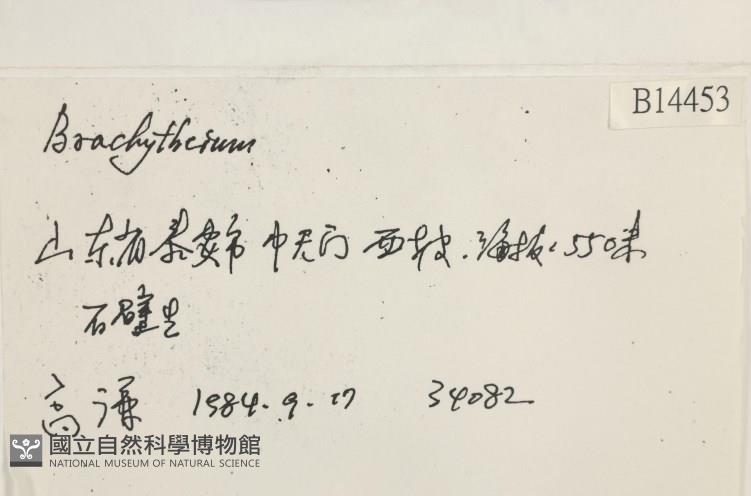 B14453
Brachythecium
山东省泰安市 中天门 西坡. 海拔:550米
石壁生
高谦 1984. 9. 17 34082
國立自然科學博物館
NATIONAL MUSEUM OF NATURAL SCIENCE